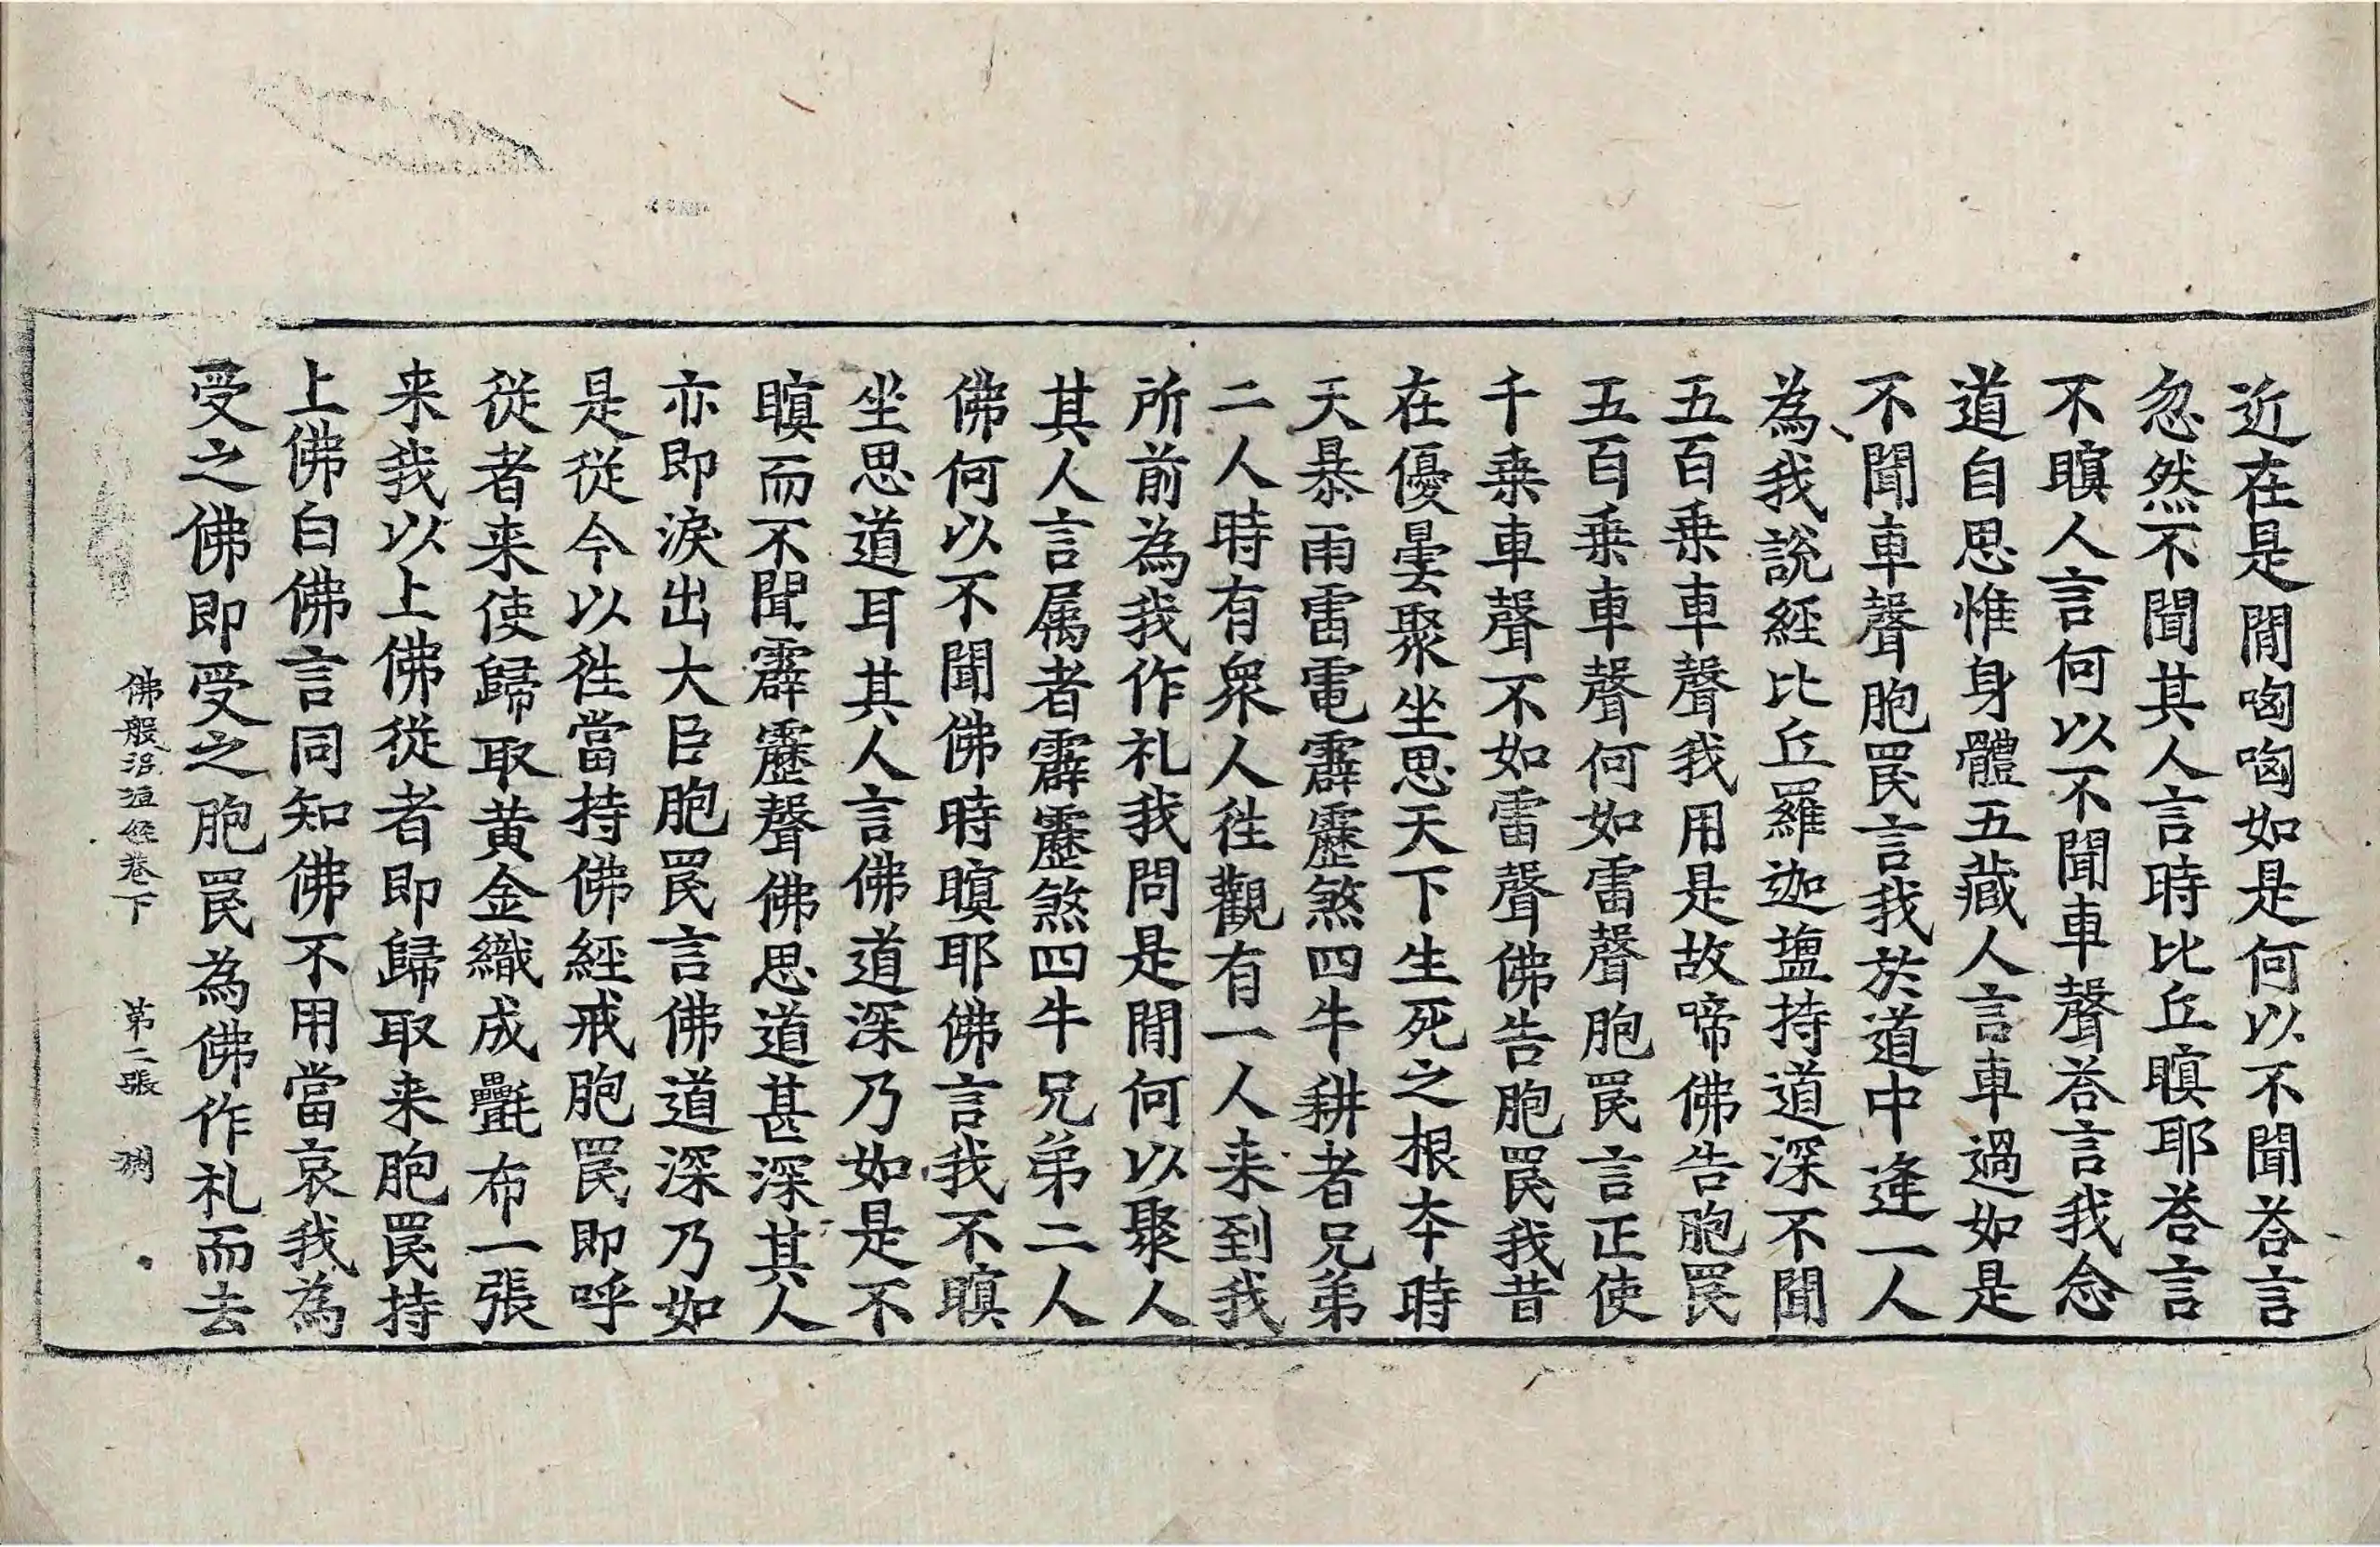 近在是閒㗋㗋如是何以不聞荅言
忽然不聞其人言時比丘瞋耶荅言
不瞋人言何以不聞車聲荅言我念
道自思惟身體五藏人言車過如是
不聞車聲胞罠言我於道中逢一人
為我說經比丘羅迦塩持道深不聞
五百乗車聲我用是故啼佛告胞罠
五百乗車聲何如雷聲胞罠言正使
千乗車聲不如雷聲佛告胞罠我昔
在優曇聚坐思天下生死之根本時
天暴雨雷電霹靂煞四牛耕者兄弟
二人時有衆人徃觀有一人来到我
所前為我作礼我問是閒何以聚人
其人言属者霹靂煞四牛兄弟二人
佛何以不聞佛時瞋耶佛言我不瞋
坐思道耳其人言佛道深乃如是不
瞋而不聞霹靂聲佛思道甚深其人
亦即淚出大臣胞罠言佛道深乃如
是從今以徃當持佛經戒胞罠即呼
從者来使歸取黄金織成㲲布一張
来我以上佛從者即歸取来胞罠持
上佛白佛言同知佛不用當哀我為
受之佛即受之胞罠為佛作礼而去
佛般泥洹經卷下 第二張